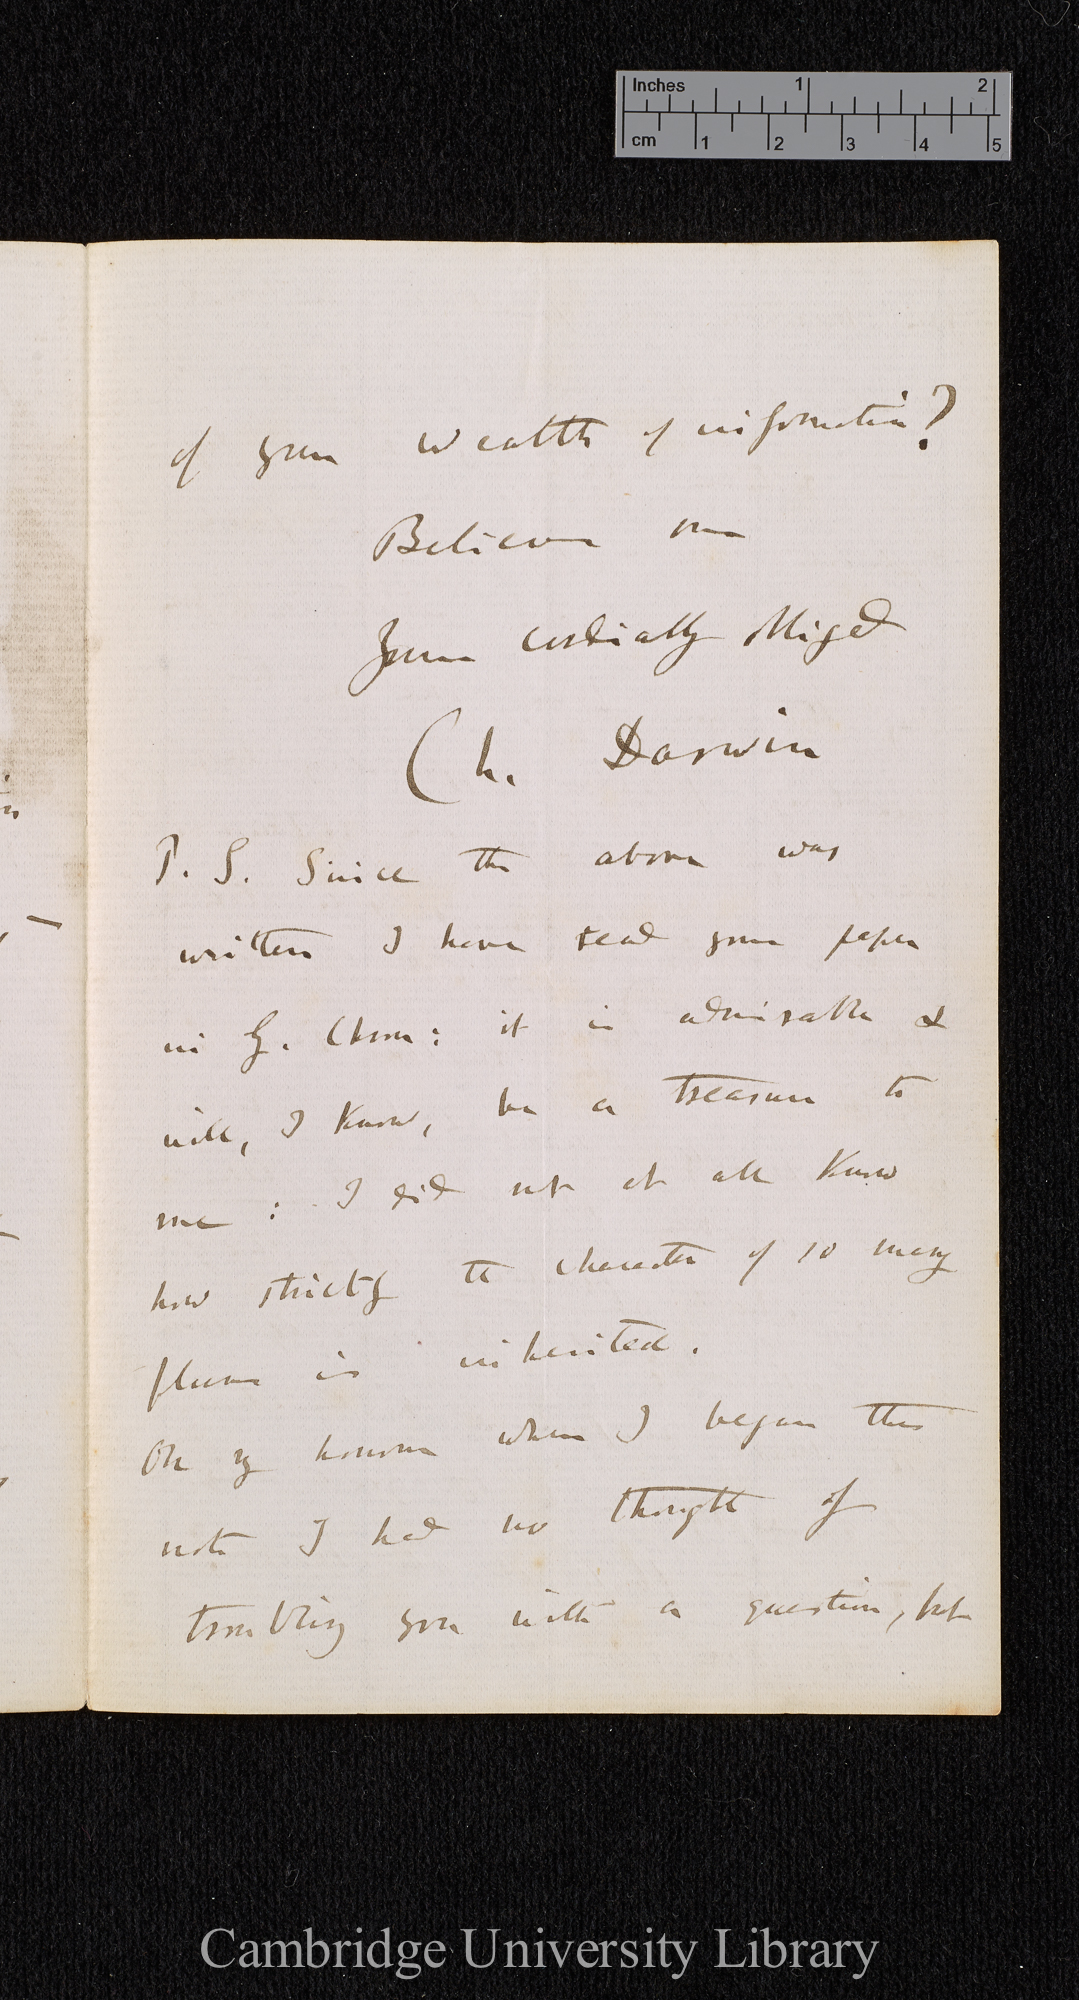 Inches 1 2
cm 1 2 3 4 5
of your wealth of information?
Believe me
Yours cordially obliged
Ch. Darwin
P. S. Since the above was
written I have read your paper
in G. Chron: it is admirable &
will, I know, be a treasure to
me: I did not at all know
how strictly the character of so many
flowers is inherited.
On my honour when I began this
note I had no thought of
troubling you with a question, but
Cambridge University Library